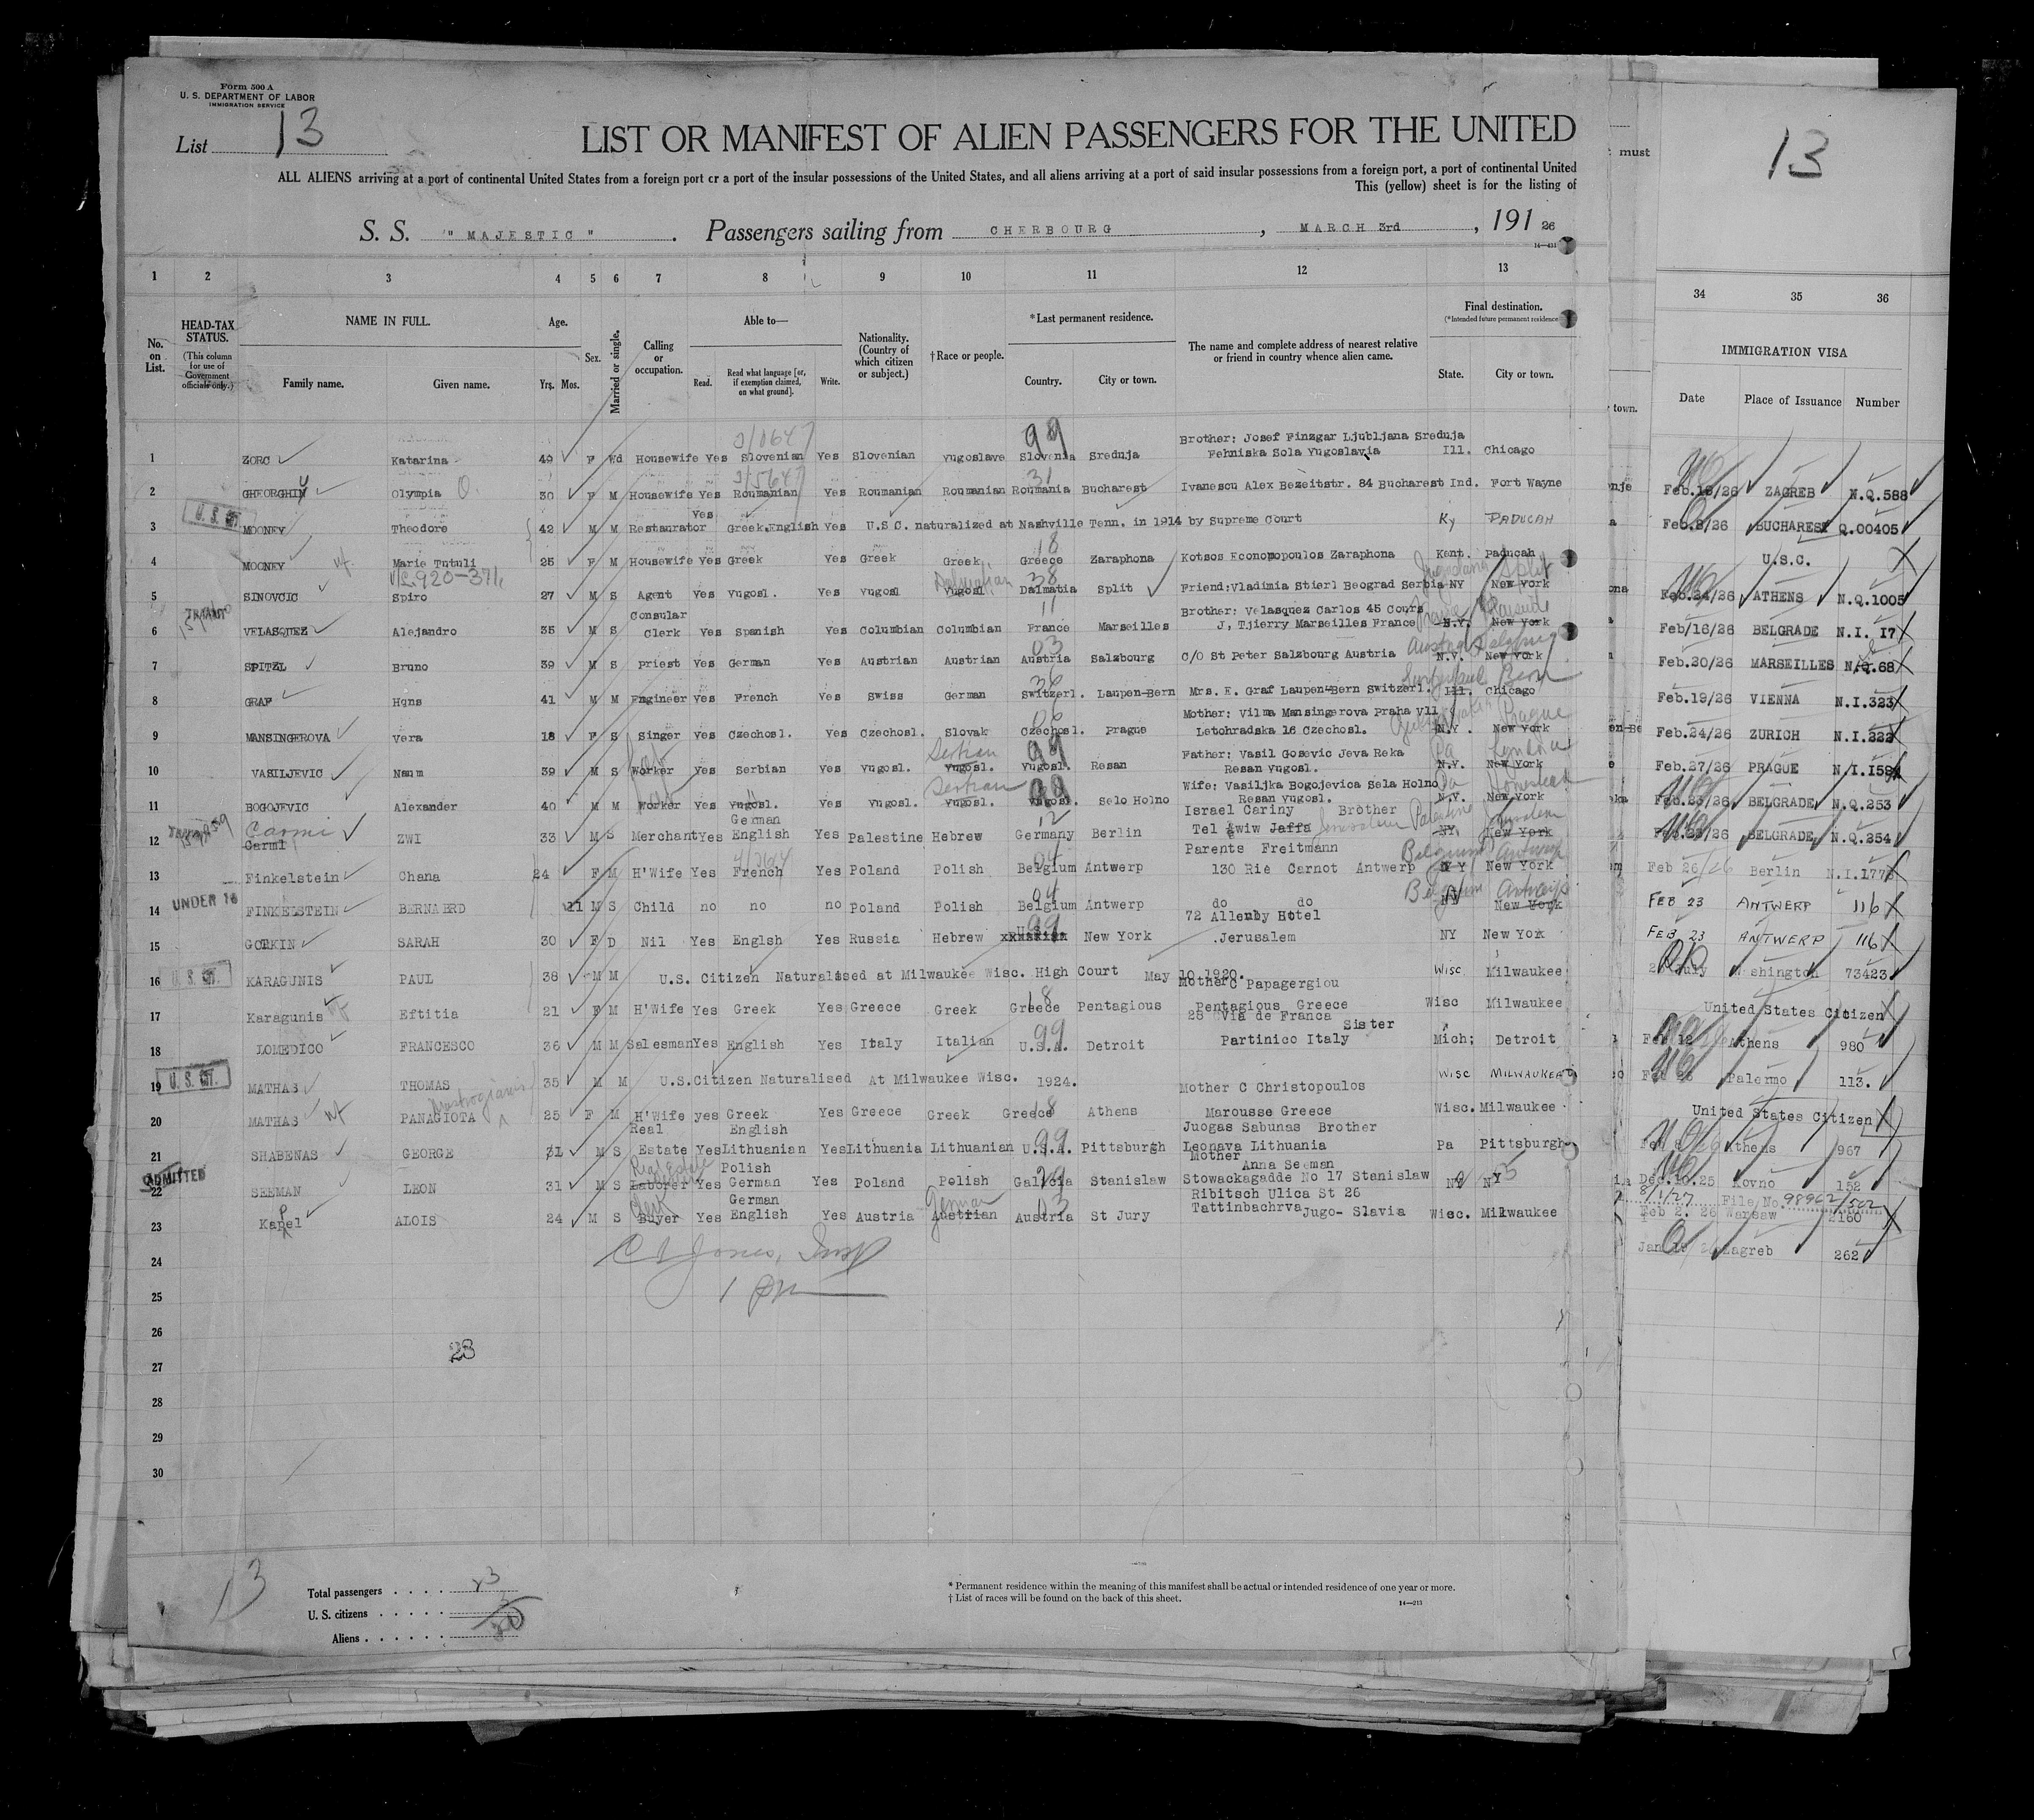 Form 500 A
U. S. DEPARTMENT OF LABOR
IMMIGRATION SERVICE
List 13
LIST OR MANIFEST OF ALIEN PASSENGERS FOR THE UNITED
ALL ALIENS arriving at a port of continental United States from a foreign port or a port of the insular possessions of the United States, and all aliens arriving at a port of said insular possessions from a foreign port, a port of continental United
This (yellow) sheet is for the listing of
S. S. "MAJESTIC". Passengers sailing from CHERBOURG, MARCH 3rd, 191 26
14—431
must
13
1 2 3 4 5 6 7 8 9 10 11 12 13
34 35 36
No. on List.
HEAD-TAX STATUS.
(This column for use of Government officials only.)
NAME IN FULL.
Family name. Given name.
Age.
Yrs. Mos.
Sex.
Married or single.
Calling or occupation.
Able to—
Read. Read what language [or, if exemption claimed, on what ground]. Write.
Nationality. (Country of which citizen or subject.)
†Race or people.
*Last permanent residence.
Country. City or town.
The name and complete address of nearest relative or friend in country whence alien came.
Final destination.
(*Intended future permanent residence
State. City or town.
town.
IMMIGRATION VISA
Date Place of Issuance Number
99
Brother: Josef Finzgar Ljubljana Sreduja
1 ZORC Katarina 49 F Wd Housewife Yes Slovenian Yes Slovenian Yugoslave Slovenia Sreduja Tehniska Sola Yugoslavia Ill. Chicago
31
2 GHEORGHIU Olympia 30 F M Housewife Yes Roumanian Yes Roumanian Roumanian Roumania Bucharest Ivanescu Alex Bezeitstr. 84 Bucharest Ind. Fort Wayne
U. S. CIT.
Yes
3 MOONEY Theodore 42 M M Restaurator Greek.English Yes U.S.C. naturalized at Nashville Tenn. in 1914 by Supreme Court Ky PADUCAH
18
4 MOONEY wf. Marie Tutuli 25 F M Housewife Yes Greek Yes Greek Greek Greece Zaraphona Kotsos Economopoulos Zaraphona Kent. Paducah
Dalmatian 38 Split
5 SINOVCIC Spiro 27 M S Agent Yes Yugosl. Yes Yugosl Yugosl Dalmatia Split Friend:Vladimia Stierl Beograd Serbia NY New York
TRANSIT Consular 11 Brother: Velasquez Carlos 45 Cours
6 VELASQUEZ Alejandro 35 M S Clerk Yes Spanish Yes Columbian Columbian France Marseilles J, Tjierry Marseilles France N.Y. New York
03
7 SPITZL Bruno 39 M S Priest Yes German Yes Austrian Austrian Austria Salzbourg C/O St Peter Salzbourg Austria N.Y. New York
8 GRAF Hans 41 M M Engineer Yes French Yes Swiss German Switzerl. Laupen-Bern Mrs. E. Graf Laupen-Bern Switzerl. Ill. Chicago
Mother: Vilma Mansingerova Praha Vll Prague
9 MANSINGEROVA Vera 18 F S Singer Yes Czechosl. Yes Czechosl. Slovak Czechosl. Prague Letohradska 16 Czechosl. N.Y. New York
Serbian 99 Father: Vasil Gosevic Jeva Reka Pa
10 VASILJEVIC Naum 39 M S Worker Yes Serbian Yes Yugosl. Yugosl. Yugosl. Resan Resan Yugosl. N.Y. New York
Serbian 99 Wife: Vasiljka Bogojevica Sela Holno Pa Homestead
11 BOGOJEVIC Alexander 40 M M Worker Yes Yugosl. Yes Yugosl. Yugosl. Yugosl. Selo Holno Resan Yugosl. N.Y. New York
Carmi German 12 Israel Cariny Brother Palestine Jerusalem
12 Carml ZWI 33 M S Merchant Yes English Yes Palestine Hebrew Germany Berlin Tel Awiw Jaffa Jerusalem NY. New York
04 Parents Freitmann Belgium Antwerp
13 Finkelstein Chana 24 F M H'Wife Yes French Yes Poland Polish Belgium Antwerp 130 Rie Carnot Antwerp N Y New York
UNDER 16 04 Belgium Antwerp
14 FINKELSTEIN BERNABRD 11 M S Child no no no Poland Polish Belgium Antwerp do do NY New York
99 72 Allenby Hotel
15 GORKIN SARAH 30 F D Nil Yes Englsh Yes Russia Hebrew U.S.A. New York .Jerusalem NY New York
U. S. CIT.
16 KARAGUNIS PAUL 38 M M U.S. Citizen Naturalised at Milwaukee Wisc. High Court May 10 1920. Wisc Milwaukee
18 Mother C Papagergiou
17 Karagunis wf Eftitia 21 F M H'Wife Yes Greek Yes Greece Greek Greece Pentagious Pentagious Greece Wisc Milwaukee
99 28 Via de Franca Sister
18 LOMEDICO FRANCESCO 36 M M Salesman Yes English Yes Italy Italian U.S.A. Detroit Partinico Italy Mich; Detroit
U. S. CIT.
19 MATHAS THOMAS 35 M M U.S.Citizen Naturalised At Milwaukee Wisc. 1924. Wisc MILWAUKEE
18 Mother C Christopoulos
20 MATHAS wf PANAGIOTA 25 F M H'Wife yes Greek Yes Greece Greek Greece Athens Marousse Greece Wisc. Milwaukee
Real English 99 Juogas Sabunas Brother
21 SHABENAS GEORGE 31 M S Estate Yes Lithuanian Yes Lithuania Lithuanian U.S.A. Pittsburgh Leonava Lithuania Pa Pittsburgh
ADMITTED Real Estate Polish Mother Anna Seeman
22 SEEMAN LEON 31 M S Laborer Yes German Yes Poland Polish Galicia Stanislaw Stowackagadde No 17 Stanislaw NY NY
Clerk German German 03 Ribitsch Ulica St 26
23 Kapel ALOIS 24 M S Buyer Yes English Yes Austria Austrian Austria St Jury Tattinbachrva Jugo- Slavia Wisc. Milwaukee
24
25 1 pm
26
23
27
28
29
30
Feb.18/26 ZAGREB N.Q.588
Feb.2/26 BUCHAREST Q.00405
U.S.C.
Feb.24/26 ATHENS N.Q.1005
Feb/16/26 BELGRADE N.I. 17
Feb.20/26 MARSEILLES N.Q.68
Feb.19/26 VIENNA N.I.323
Feb.24/26 ZURICH N.I.222
Feb.27/26 PRAGUE N.I.159
Feb.23/26 BELGRADE N.Q.253
Feb.23/26 BELGRADE N.Q.254
Feb 26/26 Berlin N.I.177
FEB 23 ANTWERP 116
FEB 23 ANTWERP 116
July Washington 73423
United States Citizen
Feb 12 Athens 980
Feb Palermo 113.
United States Citizen
Feb Athens 967
Dec.10.25 Kovno 152
8/1/27 File No. 98962/502
Feb 2. 26 Warsaw 2160
Jan Zagreb 262
13
Total passengers 23
U. S. citizens 3
Aliens 20
* Permanent residence within the meaning of this manifest shall be actual or intended residence of one year or more.
† List of races will be found on the back of this sheet.
14—213